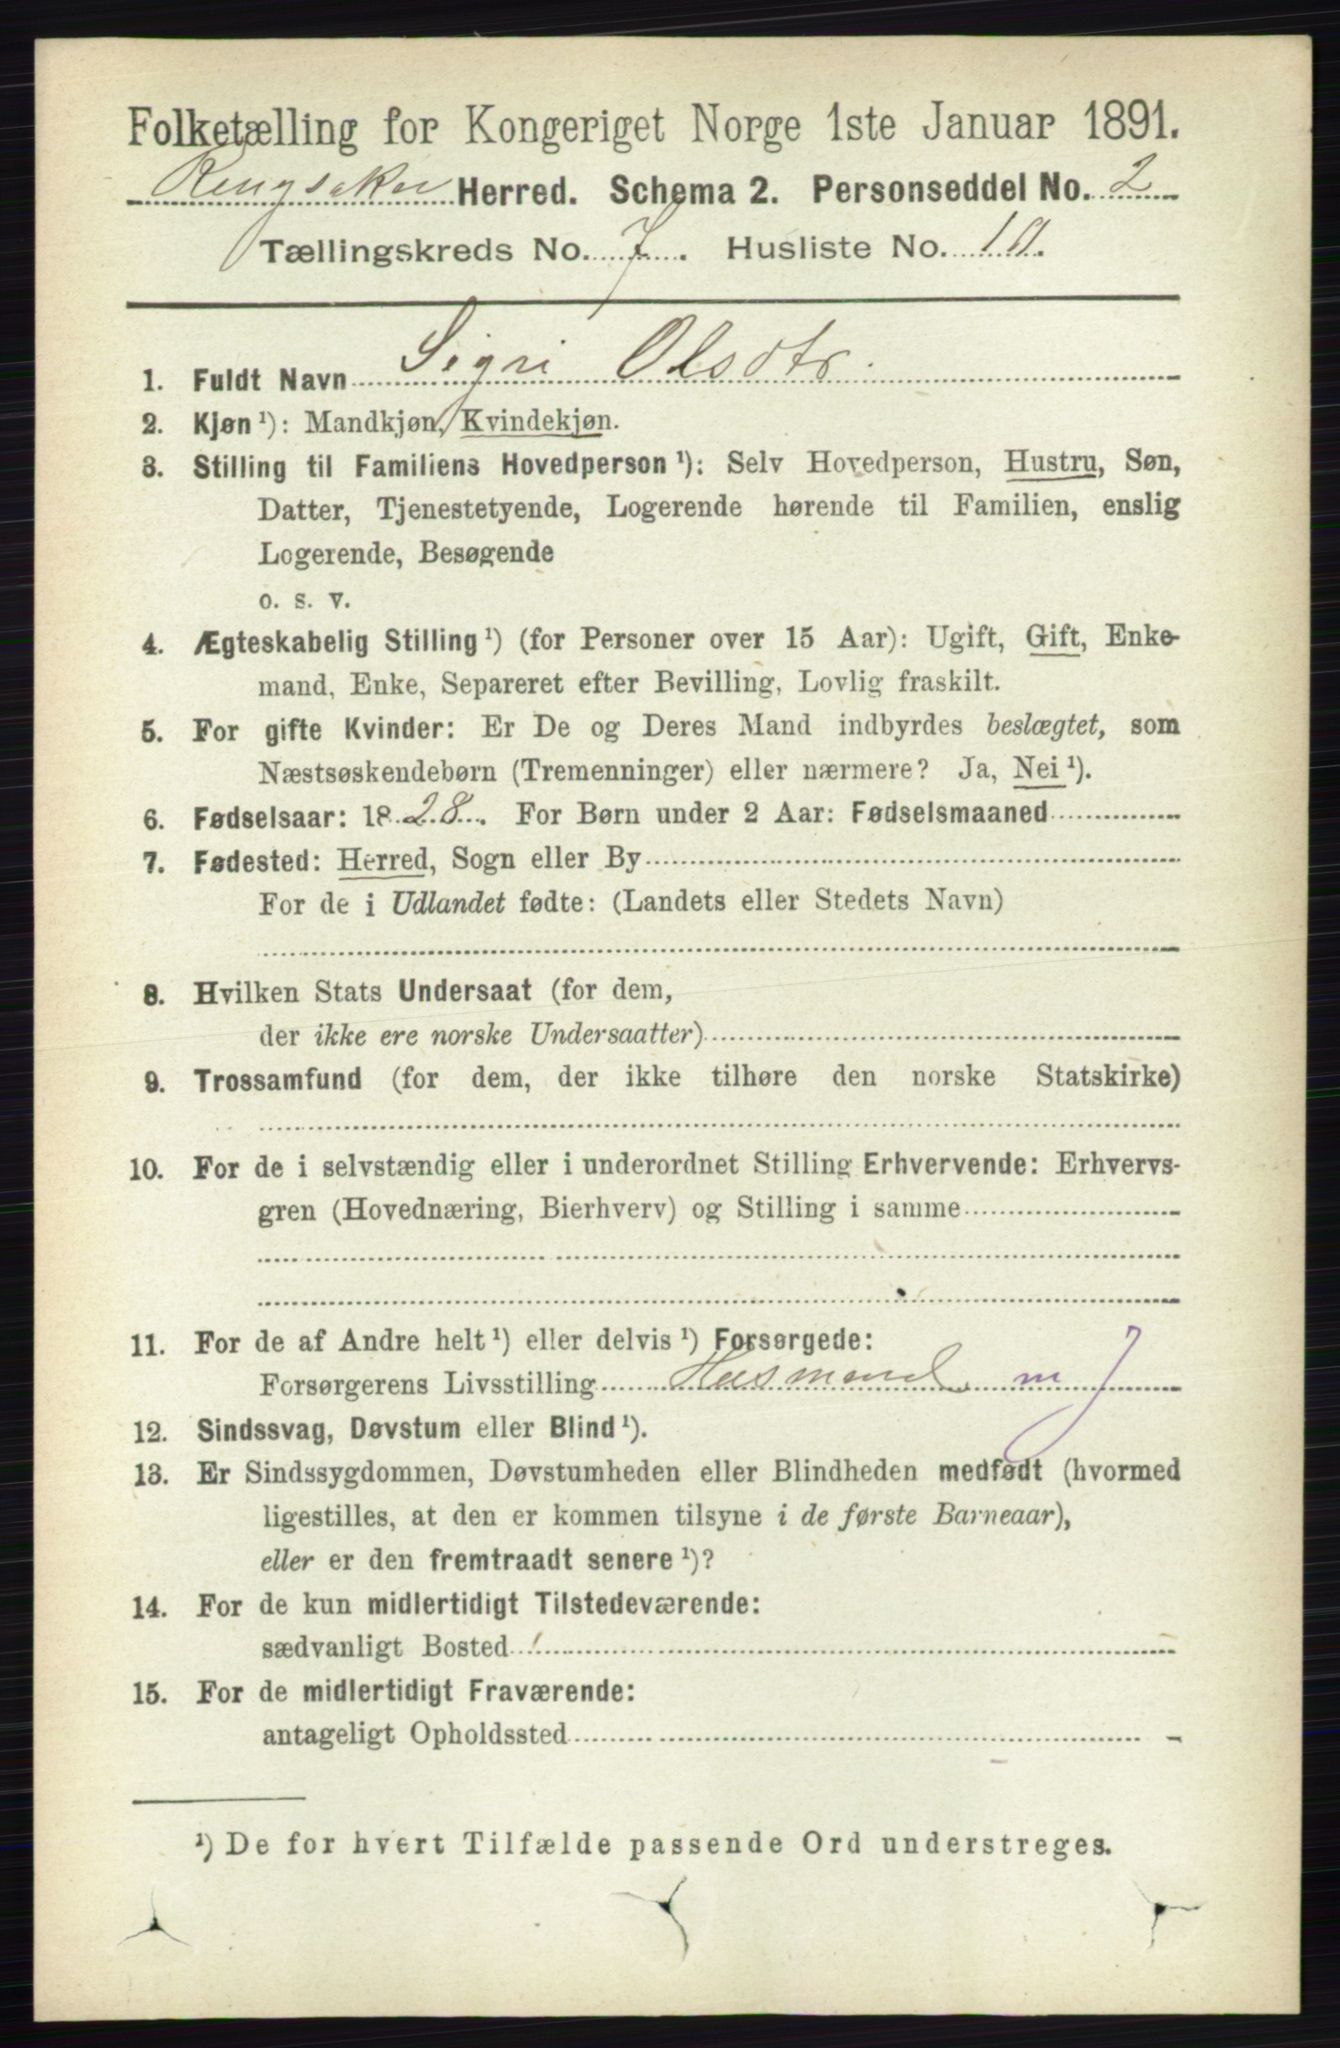 Folketælling for Kongeriget Norge 1ste Januar 1891.
Ringsaker Herred. Schema 2. Personseddel No. 2
Tællingskreds No. 7. Husliste No. 10.
1. Fuldt Navn Sigri Olsdtr.
2. Kjøn ¹): Mandkjøn, Kvindekjøn.
3. Stilling til Familiens Hovedperson ¹): Selv Hovedperson, Hustru, Søn,
Datter, Tjenestetyende, Logerende hørende til Familien, enslig
Logerende, Besøgende
o. s. v.
4. Ægteskabelig Stilling ¹) (for Personer over 15 Aar): Ugift, Gift, Enke-
mand, Enke, Separeret efter Bevilling, Lovlig fraskilt.
5. For gifte Kvinder: Er De og Deres Mand indbyrdes beslægtet, som
Næstsøskendebørn (Tremenninger) eller nærmere? Ja, Nei ¹).
6. Fødselsaar: 1828. For Børn under 2 Aar: Fødselsmaaned
7. Fødested: Herred, Sogn eller By
For de i Udlandet fødte: (Landets eller Stedets Navn)
8. Hvilken Stats Undersaat (for dem,
der ikke ere norske Undersaatter)
9. Trossamfund (for dem, der ikke tilhøre den norske Statskirke)
10. For de i selvstændig eller i underordnet Stilling Erhvervende: Erhvervs-
gren (Hovednæring, Bierhverv) og Stilling i samme
11. For de af Andre helt ¹) eller delvis ¹) Forsørgede:
Forsørgerens Livsstilling Husmand m J
12. Sindssvag, Døvstum eller Blind ¹).
13. Er Sindssygdommen, Døvstumheden eller Blindheden medfødt (hvormed
ligestilles, at den er kommen tilsyne i de første Barneaar),
eller er den fremtraadt senere ¹)?
14. For de kun midlertidigt Tilstedeværende:
sædvanligt Bosted
15. For de midlertidigt Fraværende:
antageligt Opholdssted
¹) De for hvert Tilfælde passende Ord understreges.